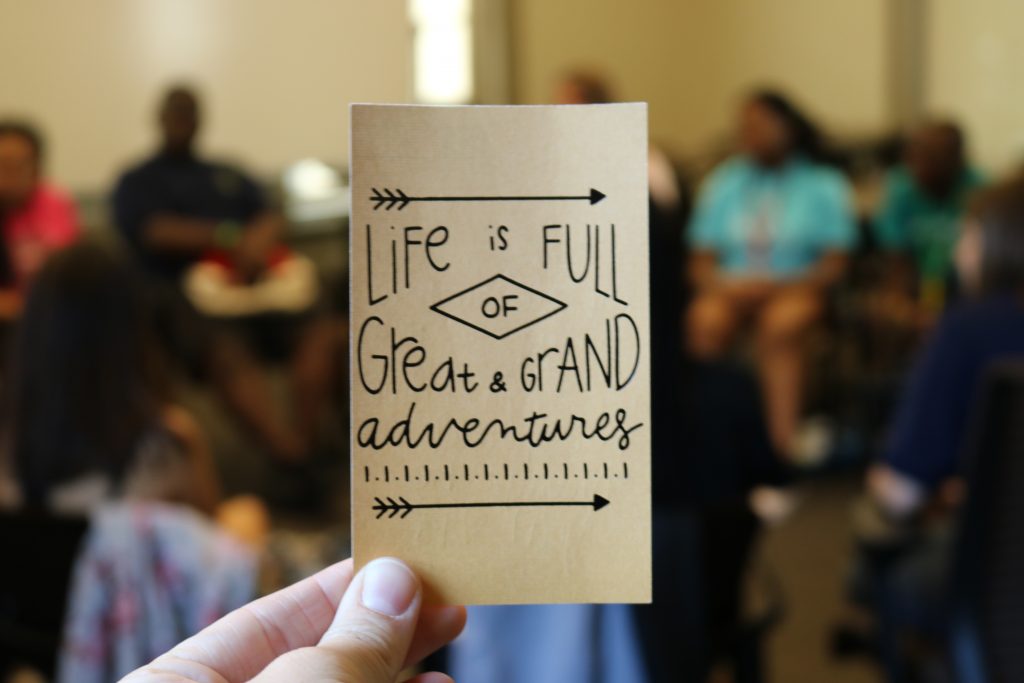 LiFe is FULL
OF
Great & GrAND
adventures